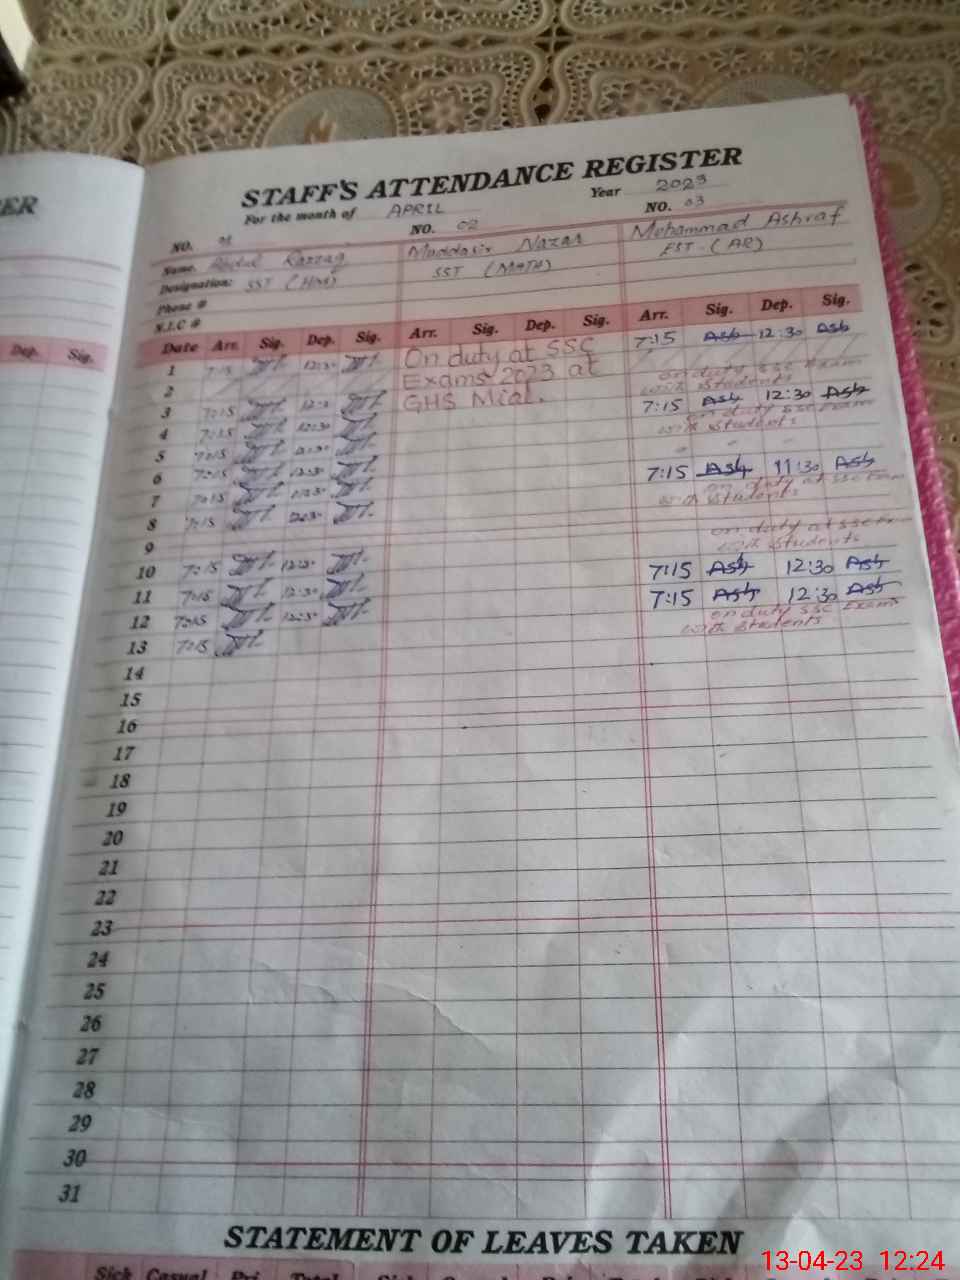 ER
STAFF'S ATTENDANCE REGISTER
For the month of APRIL Year 2023
NO. 01 NO. 02 NO. 03
Name. Abdul Razzaq Muddasir Nazar Mohammad Ashraf
Designation: SST (HM) SST (MATH) EST. (AR)
Phone #
N.I.C #
Dep. Sig. Date Arr. Sig. Dep. Sig. Arr. Sig. Dep. Sig. Arr. Sig. Dep. Sig.
1 7:15 12:30 On duty at SSC 7:15 Ash 12:30 Ash
2 Exams 2023 at on duty SSC Exam
with Students
3 7:15 GHS Mial. 7:15 Ash 12:30 Ash
4 7:15 12:30 on duty SSC Exam
with Students
5 7:15 12:30
6 7:15 12:30 7:15 Ash 11:30 Ash
7 7:15 12:30 on duty at SSC Exam
with Students
8 7:15 12:30
9 on duty at SSC
with Students
10 7:15 12:30 7:15 Ash 12:30 Ash
11 7:15 12:30 7:15 Ash 12:30 Ash
12 7:15 12:30 on duty SSC Exams
with Students
13 7:15
14
15
16
17
18
19
20
21
22
23
24
25
26
27
28
29
30
31
STATEMENT OF LEAVES TAKEN
Sick Casual Pri. Total
13-04-23 12:24